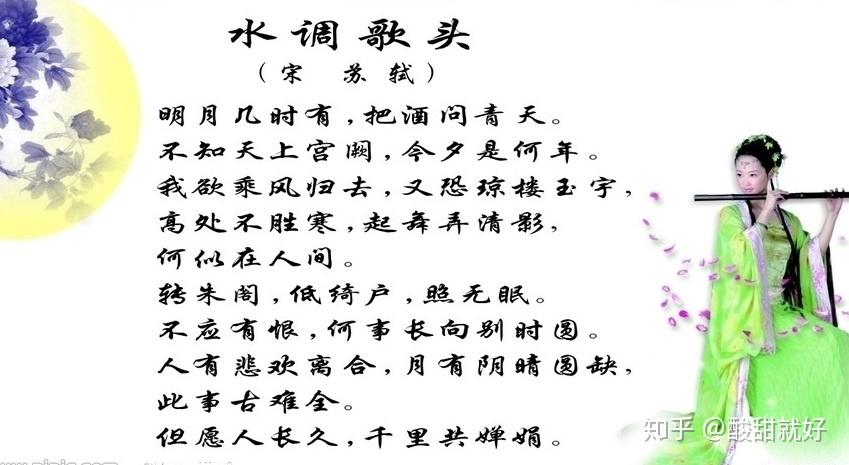 水调歌头
（宋 苏轼）
明月几时有，把酒问青天。
不知天上宫阙，今夕是何年。
我欲乘风归去，又恐琼楼玉宇，
高处不胜寒，起舞弄清影，
何似在人间。
转朱阁，低绮户，照无眠。
不应有恨，何事长向别时圆。
人有悲欢离合，月有阴晴圆缺，
此事古难全。
但愿人长久，千里共婵娟。
知乎 @酸甜就好